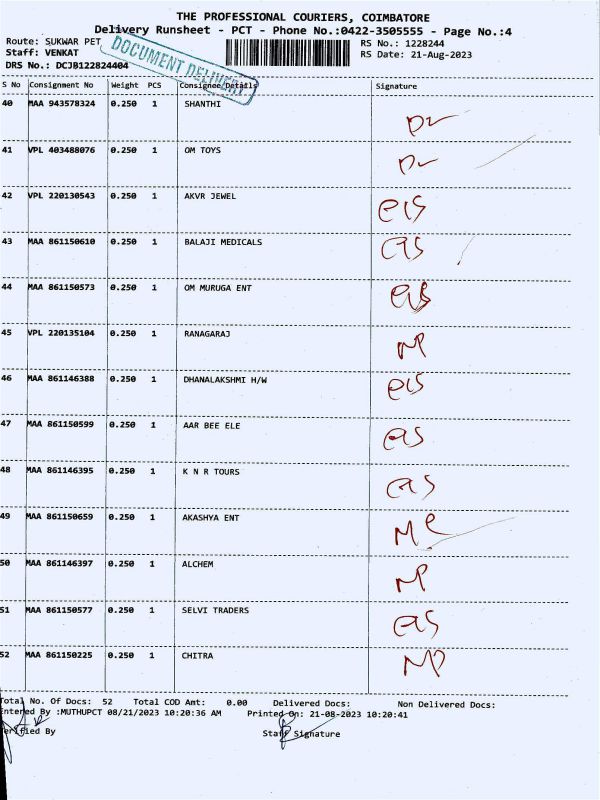 THE PROFESSIONAL COURIERS, COIMBATORE
Delivery Runsheet - PCT - Phone No.:0422-3505555 - Page No.:4
Route: SUKWAR PET
Staff: VENKAT
DRS No.: DCJB122824404
DOCUMENT DELIVERY
RS No.: 1228244
RS Date: 21-Aug-2023
S No Consignment No Weight PCS Consignee/Details Signature
40 MAA 943578324 0.250 1 SHANTHI
41 VPL 403488076 0.250 1 OM TOYS
42 VPL 220130543 0.250 1 AKVR JEWEL
43 MAA 861150610 0.250 1 BALAJI MEDICALS
44 MAA 861150573 0.250 1 OM MURUGA ENT
45 VPL 220135104 0.250 1 RANAGARAJ
46 MAA 861146388 0.250 1 DHANALAKSHMI H/W
47 MAA 861150599 0.250 1 AAR BEE ELE
48 MAA 861146395 0.250 1 K N R TOURS
49 MAA 861150659 0.250 1 AKASHYA ENT
50 MAA 861146397 0.250 1 ALCHEM
51 MAA 861150577 0.250 1 SELVI TRADERS
52 MAA 861150225 0.250 1 CHITRA
Total No. Of Docs: 52 Total COD Amt: 0.00 Delivered Docs: Non Delivered Docs:
Entered By :MUTHUPCT 08/21/2023 10:20:36 AM Printed On: 21-08-2023 10:20:41
Verified By Staff Signature